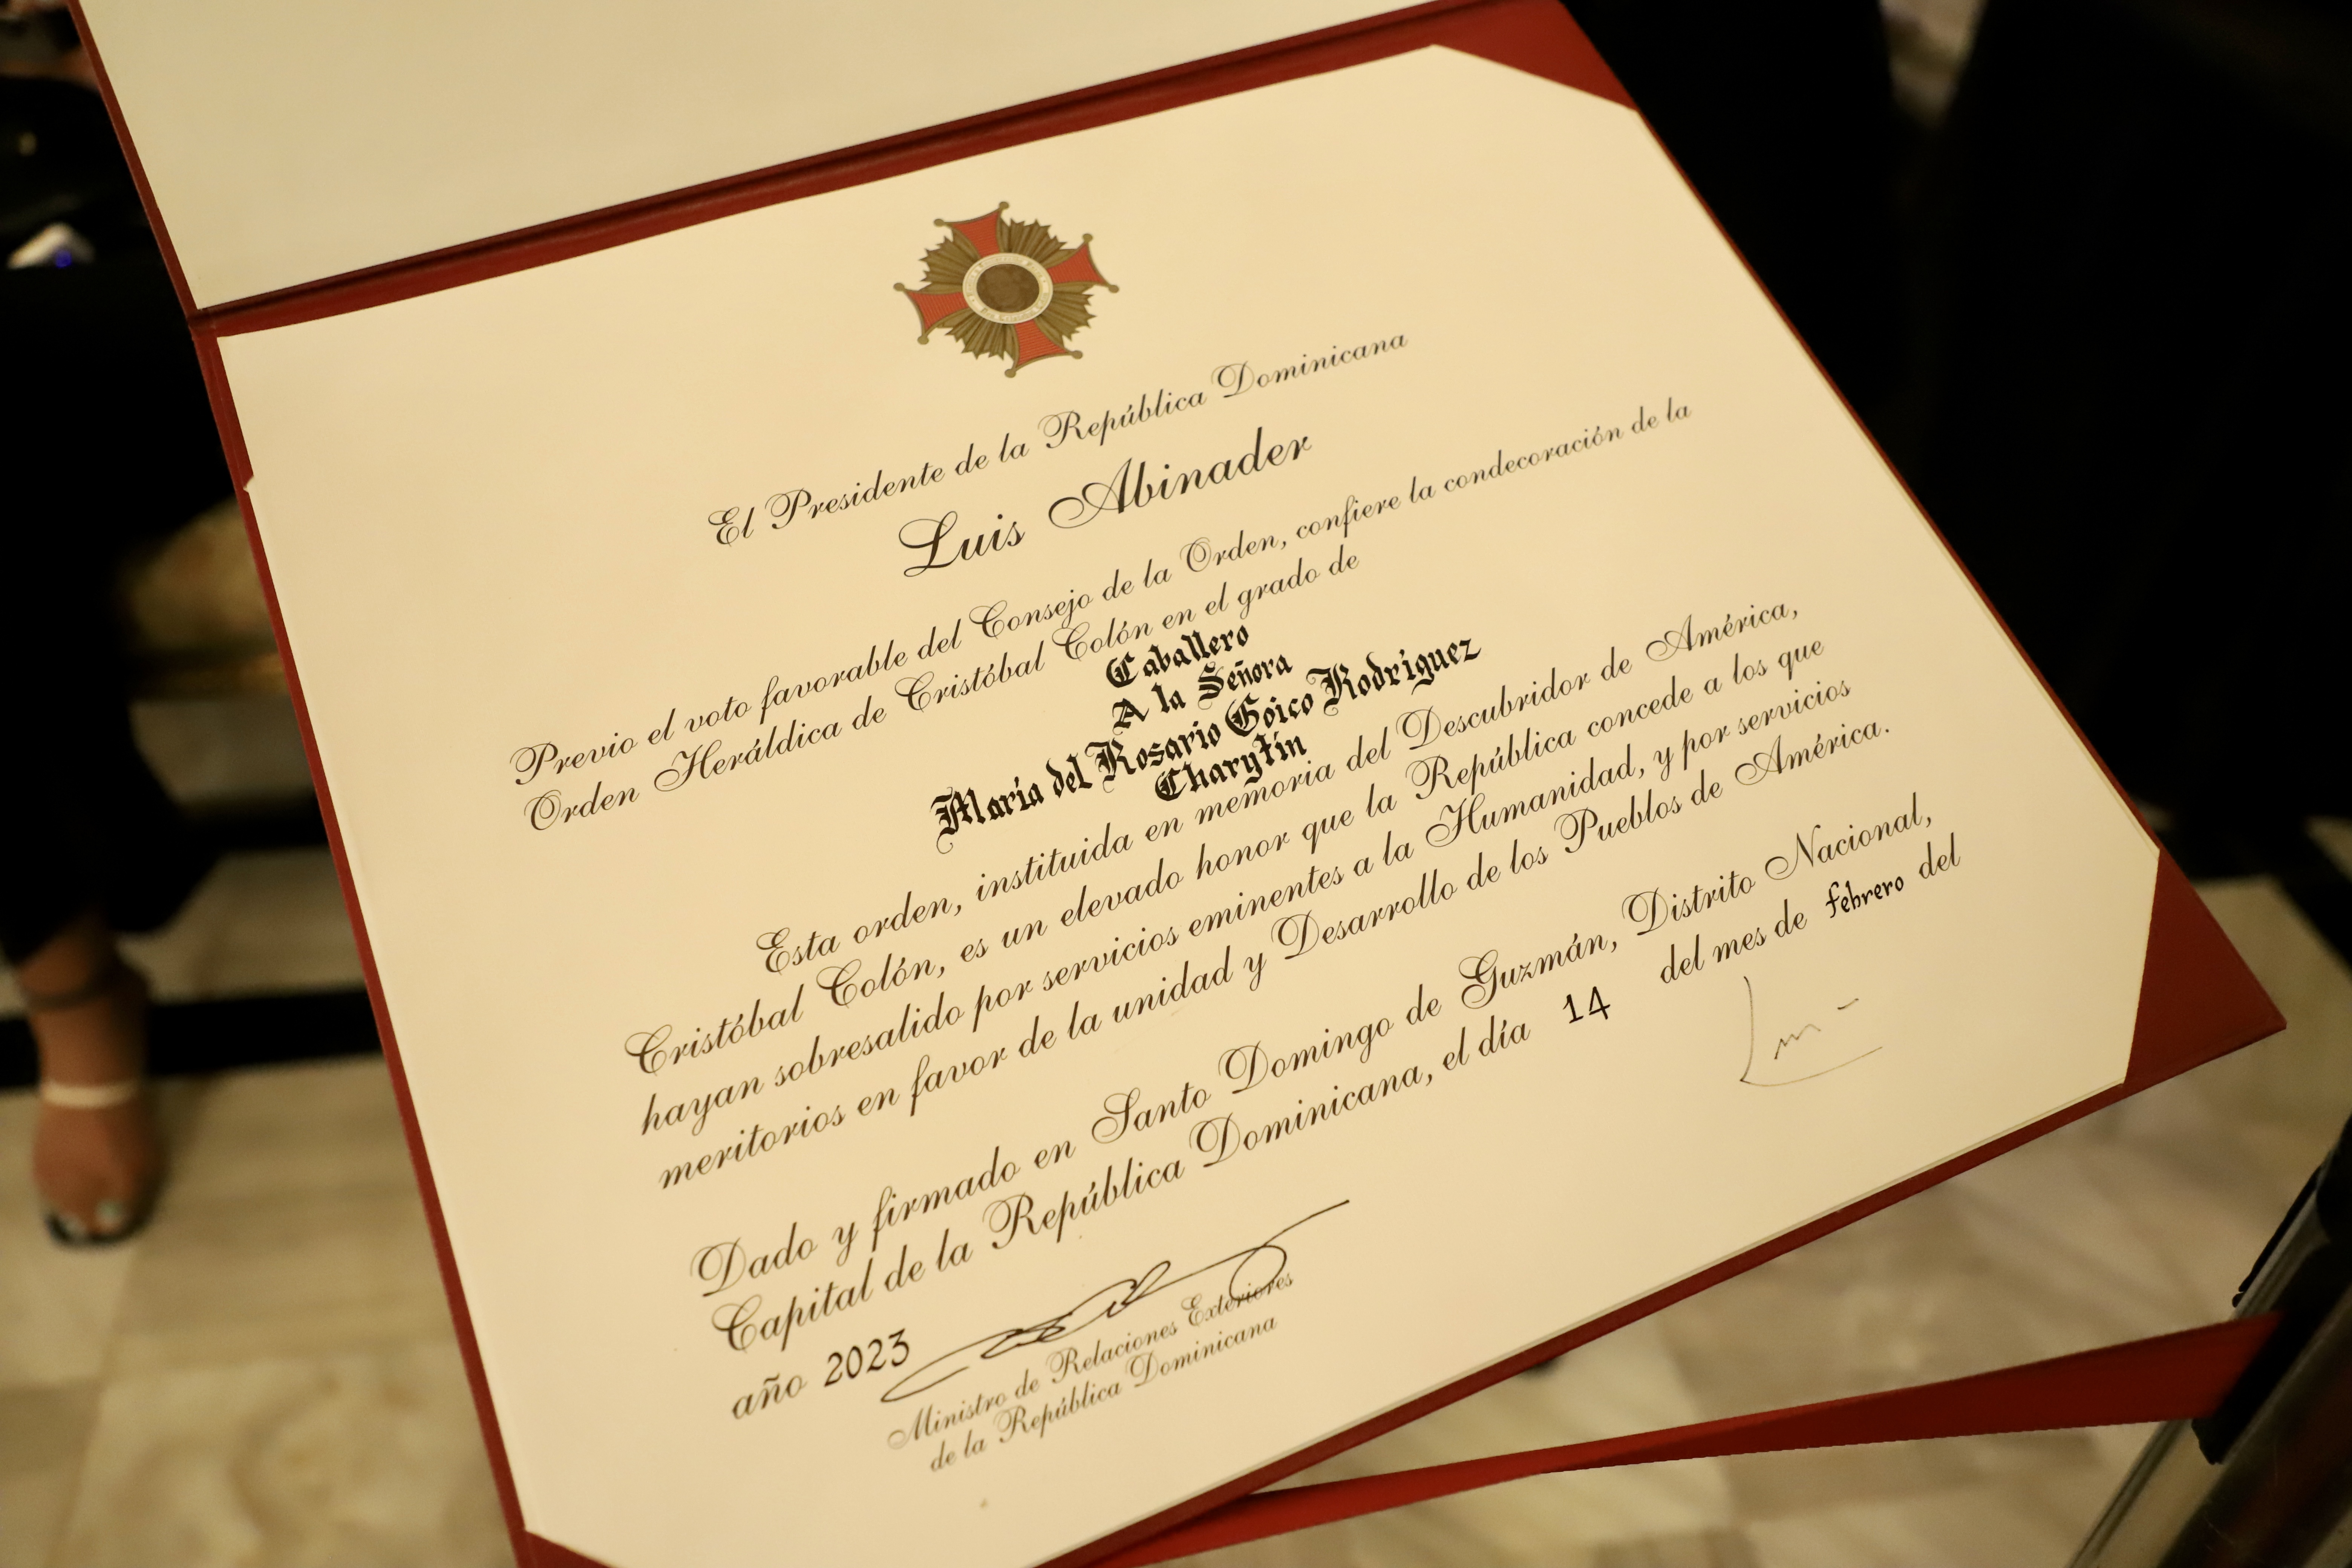 El Presidente de la República Dominicana
Luis Abinader
Previo el voto favorable del Consejo de la Orden, confiere la condecoración de la
Orden Heráldica de Cristóbal Colón en el grado de
Caballero
A la Señora
María del Rosario Goico Rodríguez
Charytín
Esta orden, instituida en memoria del Descubridor de América,
Cristóbal Colón, es un elevado honor que la República concede a los que
hayan sobresalido por servicios eminentes a la Humanidad, y por servicios
meritorios en favor de la unidad y Desarrollo de los Pueblos de América.
Dado y firmado en Santo Domingo de Guzmán, Distrito Nacional,
Capital de la República Dominicana, el día 14 del mes de febrero del
año 2023
Ministro de Relaciones Exteriores
de la República Dominicana